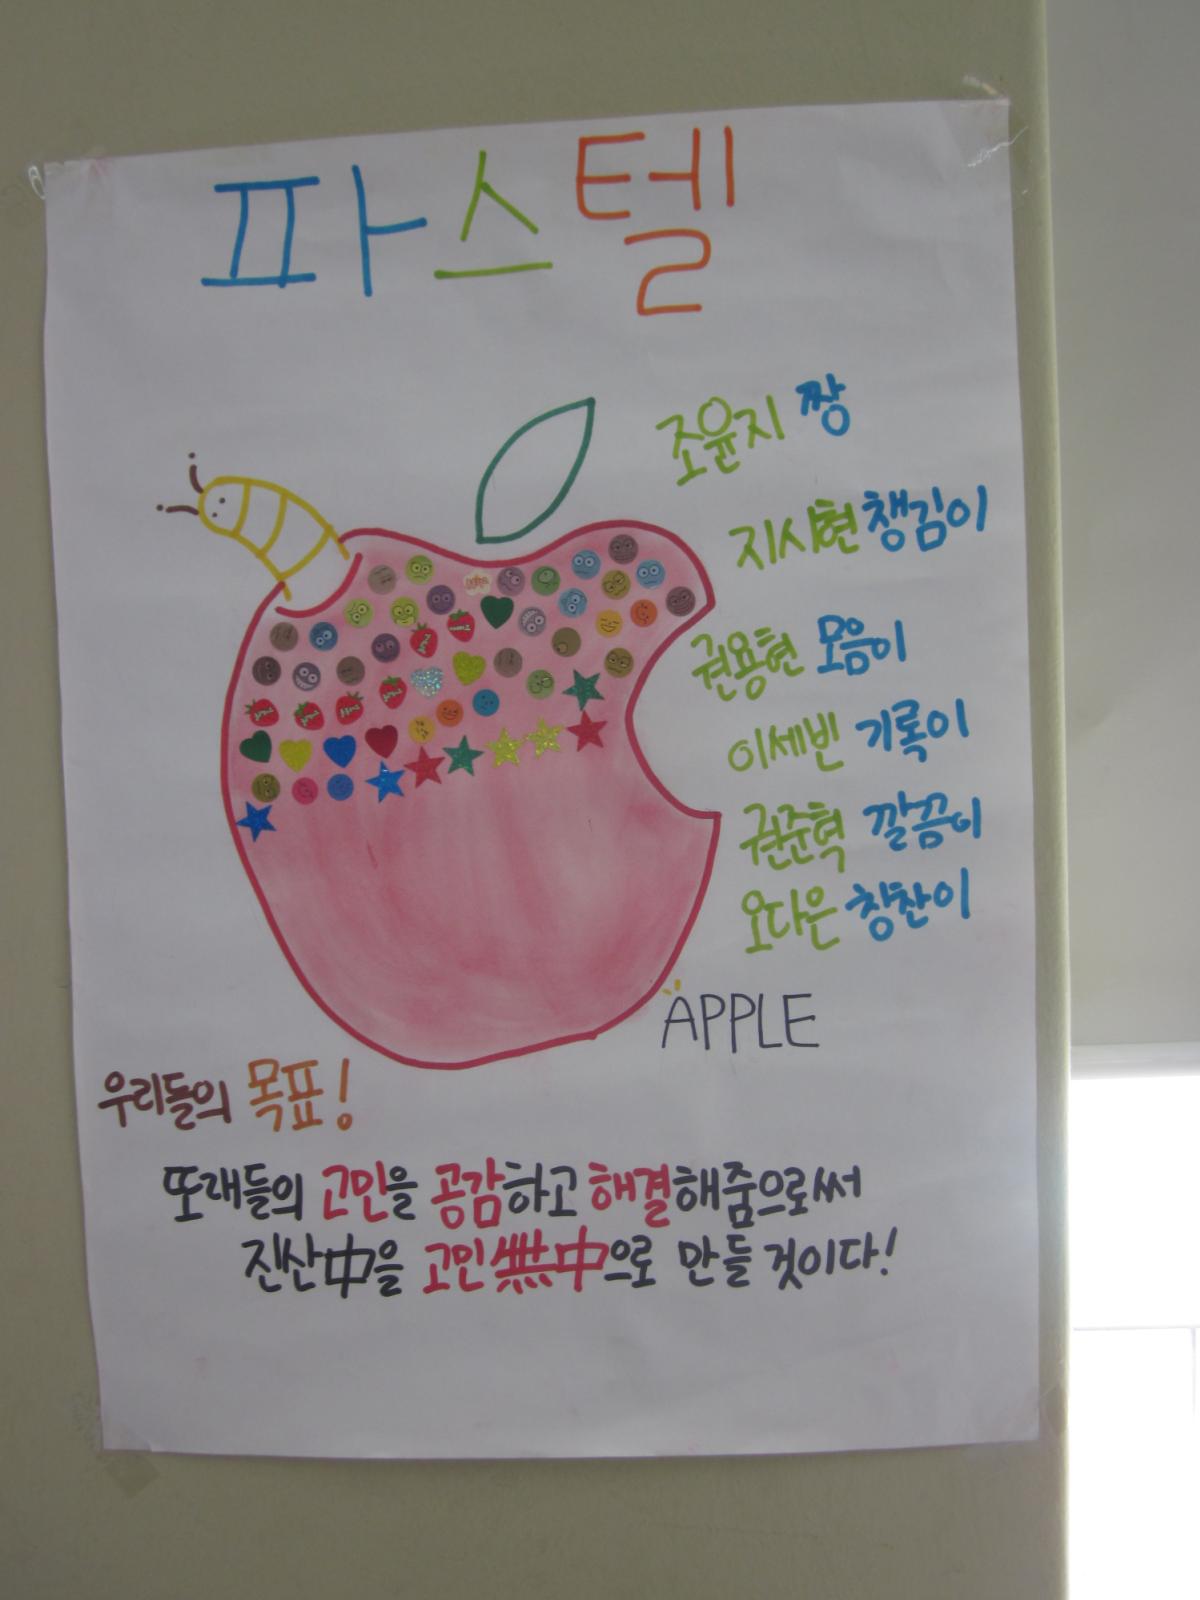 파스텔
조윤지 짱
지시현 챙김이
권용현 모음이
이세빈 기록이
권준혁 깔끔이
오다은 칭찬이
APPLE
우리들의 목표!
또래들의 고민을 공감하고 해결해줌으로써
진산中을 고민無中으로 만들 것이다!